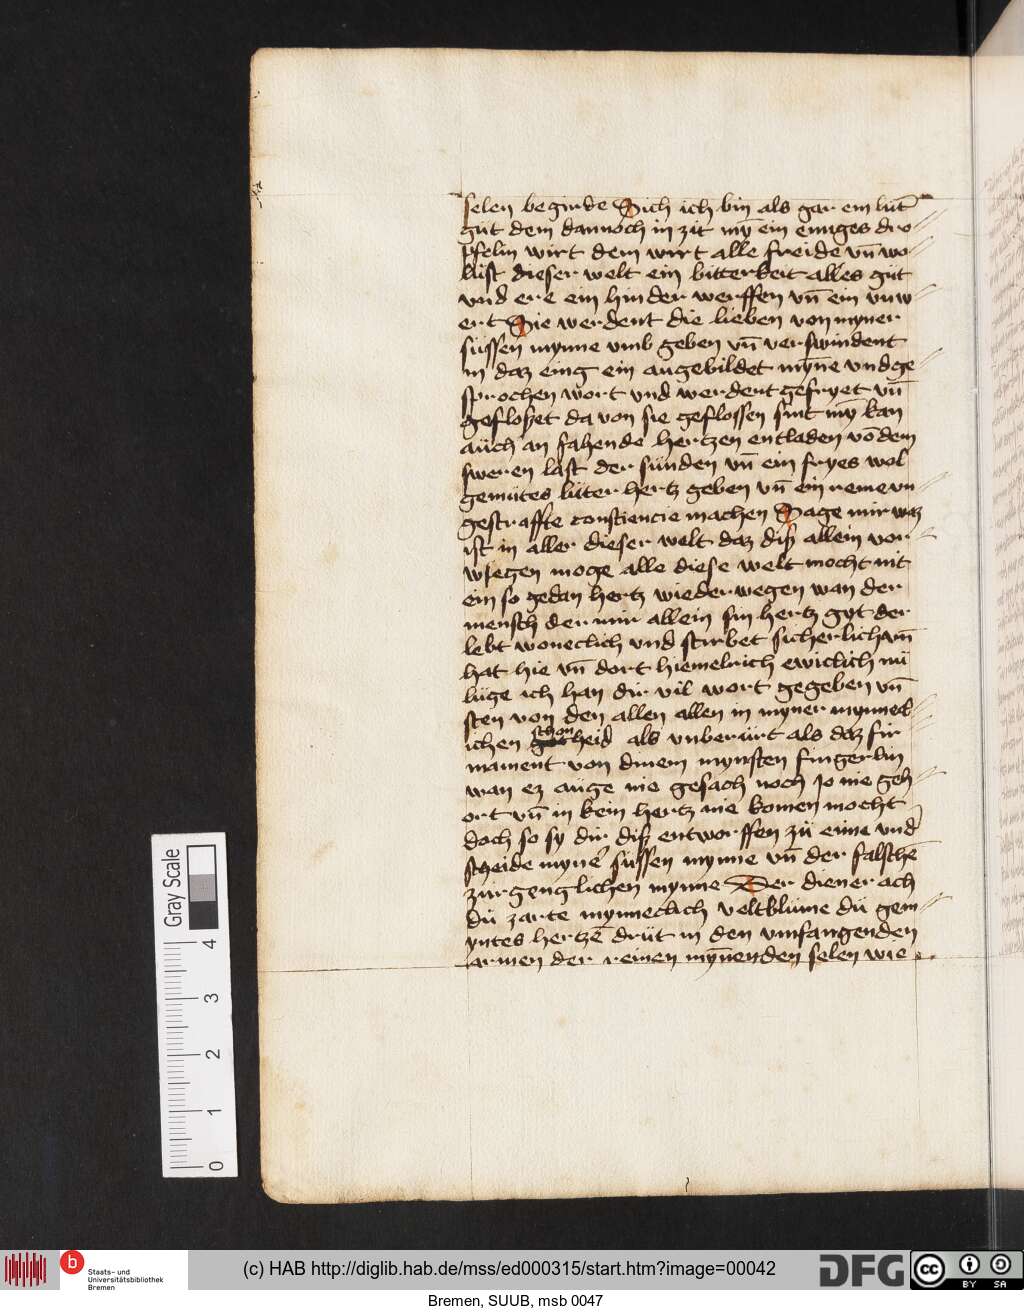 selen begirde Sich ich bin als gar ein lut̄
gůt dem dannoch in zit mȳ ein einiges dro
pfelin wirt dem wirt alle freide vn̄ wo
llust dieser welt ein bitterkeit alles gůt
vnd ere ein hinder werffen vn̄ ein vnw
ert Sie werdent die lieben von myner
sůssen mynne vmb geben vn̄ verswindent
in daz einig ein angebildet mȳne vnd ge
sprochen wort vnd werdent gefryet vn̄
gefloßet da von sie geflossen sint mȳ kan
auch an fahende hertzen entladen vō dem
sweren last der sunden vn̄ ein fryes wol
gemůtes luter hertz geben vn̄ ein reine vn
gestraffte consciencie machen Sage mir waz
ist in aller dieser welt daz diß allein vor
wiegen moge alle diese welt mocht nit
ein so gedan hertz wiederwegen wan der
mensch der mir allein sin hertz gyt der
lebt woneclich vnd stirbet sicherlich vn̄
hat hie vn̄ dort hiemelrich ewiclich nů
luge ich han dir vil wort gegeben vn̄
sten von den allen allen in myner mynnecl
ichen schon heid als vnberürt als daz fir
mament von dinem mynsten fingerlin
wan ez auge nie gesach noch io nie geh
ort vn̄ in kein hertz nie komen mocht
doch so sy dir diß entworffen zů eime vnd
scheide myne᷑ sůssen mynne vn̄ der falschē
zurgenglichen mynne Der diener ach
dů zarte mynneclich veltblůme dů gem
yntes hertzē drut in den vmfangenden
armen der reinen mȳnenden selen wie
Gray Scale
4
3
2
1
0
b
Staats- und
Universitätsbibliothek
Bremen
(c) HAB http://diglib.hab.de/mss/ed000315/start.htm?image=00042
DFG
cc
BY
SA
Bremen, SUUB, msb 0047